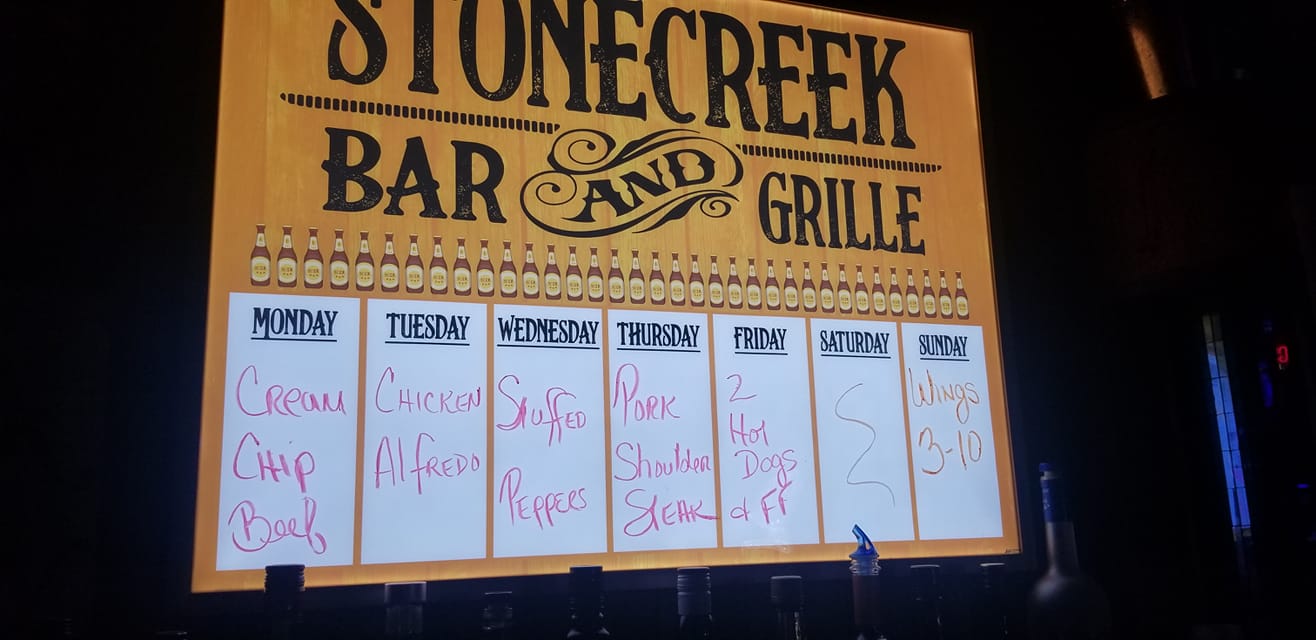 STONECREEK
BAR AND GRILLE
MONDAY
Cream
Chip
Beef
TUESDAY
Chicken
Alfredo
WEDNESDAY
Stuffed
Peppers
THURSDAY
Pork
Shoulder
Steak
FRIDAY
2
Hot
Dogs
& FF
SATURDAY
SUNDAY
Wings
3-10